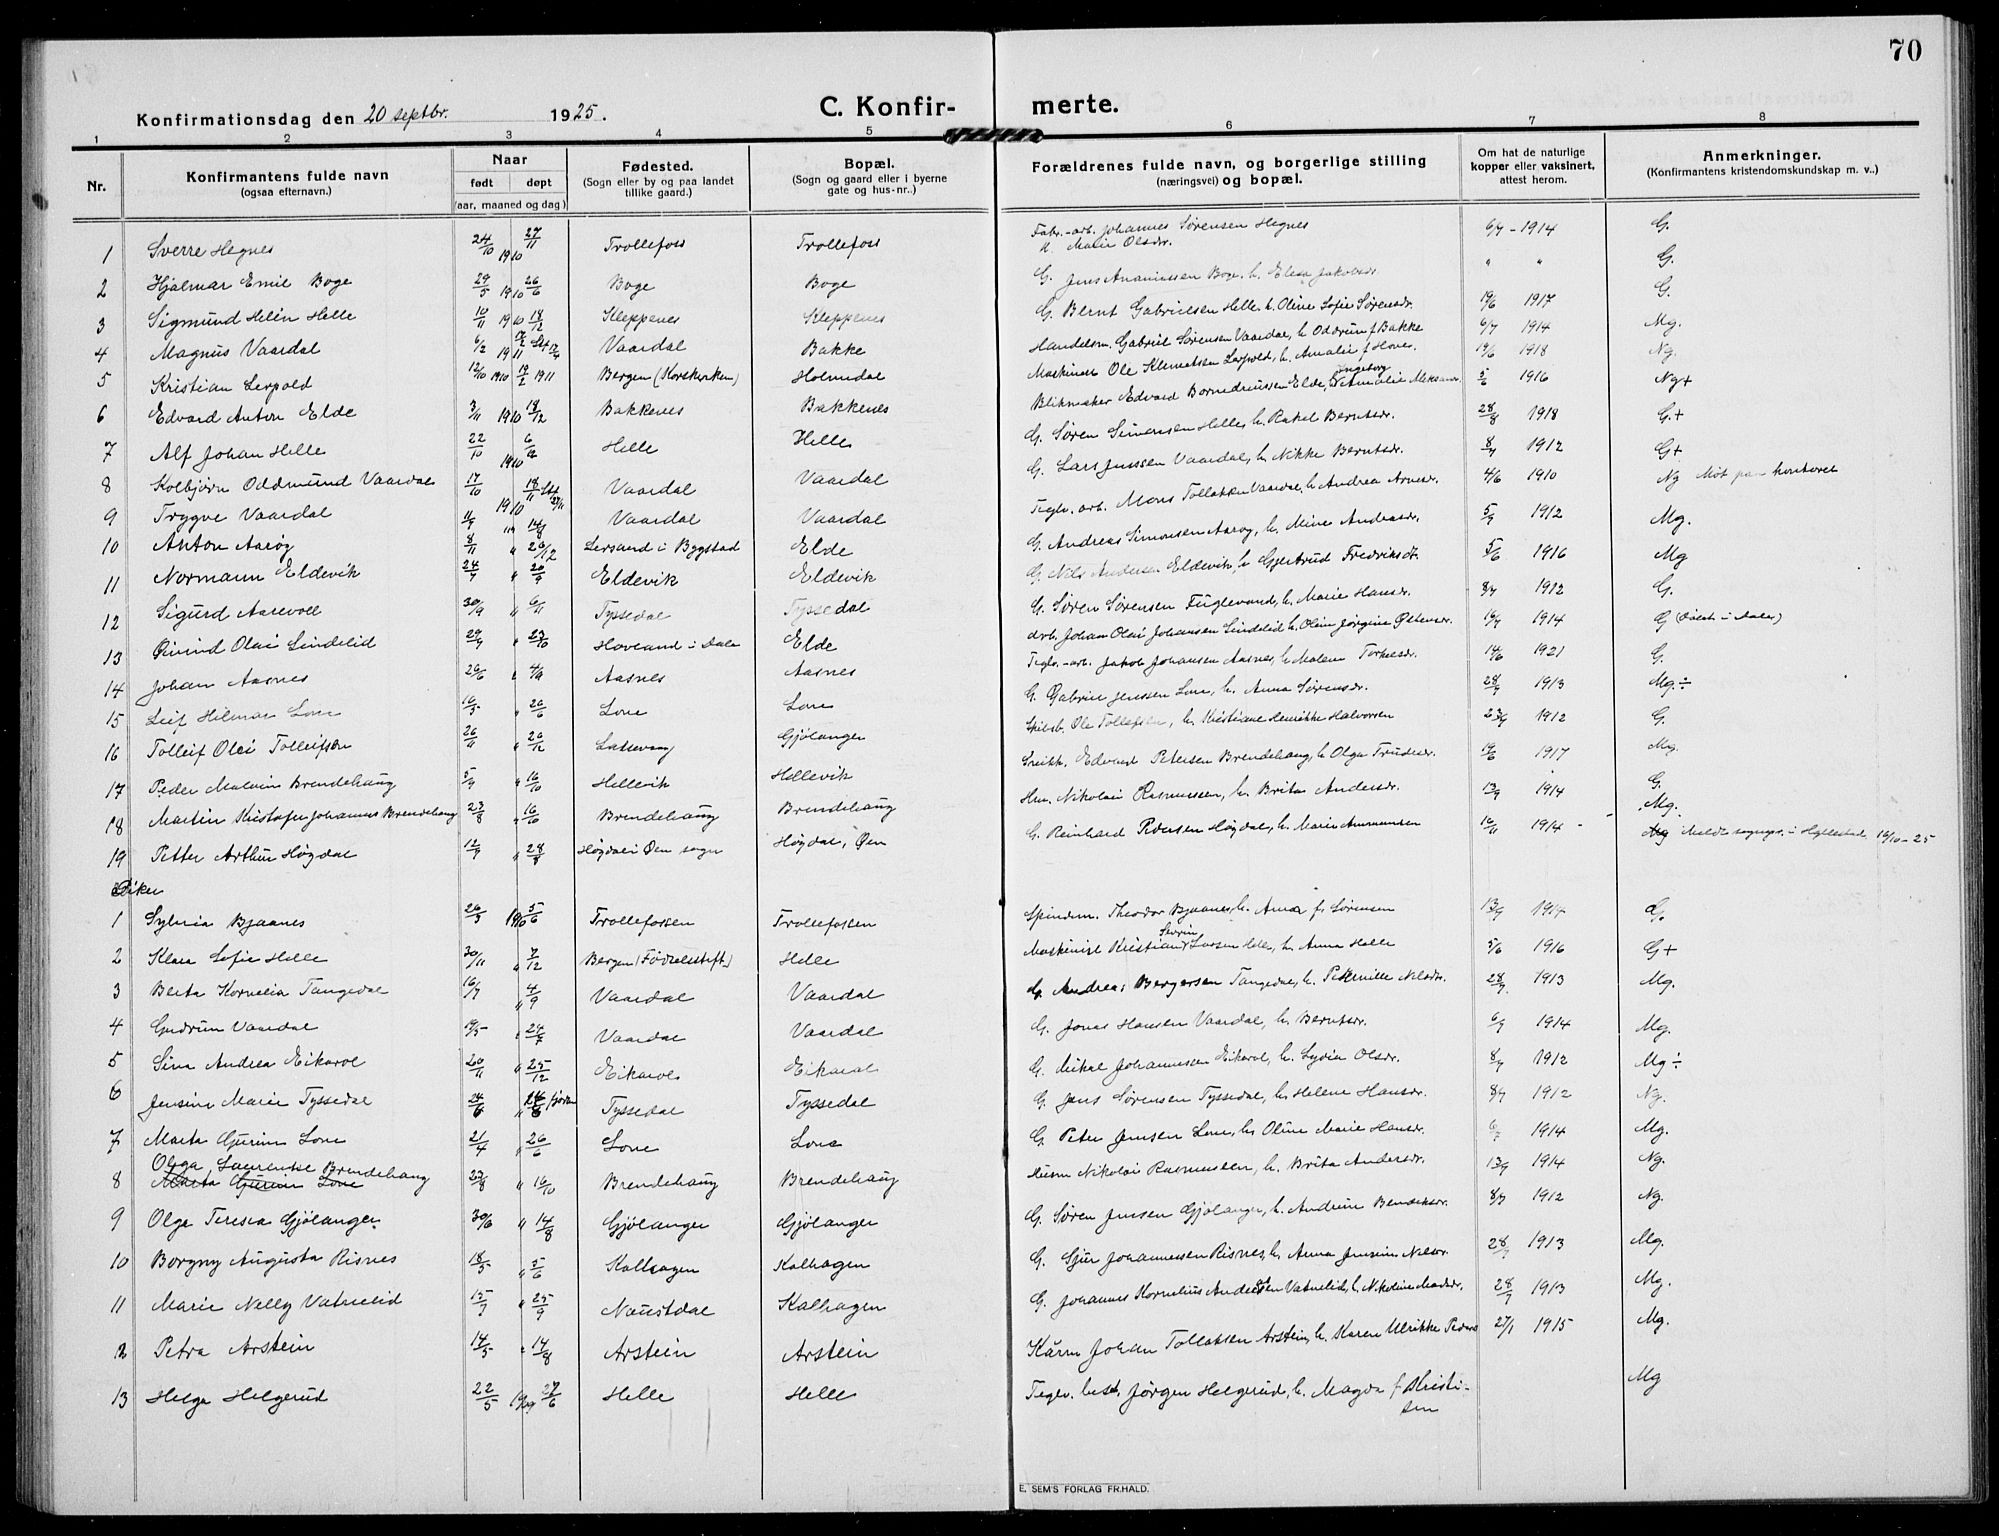 70
Konfirmationsdag den 20 septbr. 1925.
C. Konfirmerte.
1 2 3 4 5 6 7 8
Nr.
Konfirmantens fulde navn
(ogsaa efternavn).
Naar
født døpt
(aar, maaned og dag)
Fødested.
(Sogn eller by og paa landet
tillike gaard.)
Bopæl.
(Sogn og gaard eller i byerne
gate og hus-nr..)
Forældrenes fulde navn, og borgerlige stilling
(næringsvei) og bopæl.
Om hat de naturlige
kopper eller vaksinert,
attest herom.
Anmerkninger.
(Konfirmantens kristendomskundskap m. v..)
1 Sverre Hegnes 24/10 1910 27/11 Trollefoss Trollefoss Fabr.-arb. Johannes Sørensen Hegnes h. Marie Olsdr. 6/7 - 1914 G.
2 Hjalmar Emil Boge 29/5 1910 26/6 Boge Boge G. Jens Ananiassen Boge, h. Elesa Jakobsdr. " " G.
3 Sigmund Helin Helle 10/11 1910 18/12 Kleppenes Kleppenes G. Bernt Gabrielsen Helle h. Oline Sofie Sørensdr. 19/6 1917 G.
4 Magnus Vaardal 6/2 1911 Vaardal Bakke Handelsm. Gabriel Sørensen Vaardal, h. Oddrun f. Bakke 6/7 1914 Mg.
5 Kristian Lerpold 12/10 1910 19/2 1911 Bergen (Korskirken) Holmedal Maskinist Ole Klemetsen Lerpold, h. Amalie f. Hove 19/6 1918 Ng.
6 Edvard Anton Elde 3/11 1910 18/12 Bakkenes Bakkenes Blikmaker Edvard Elde, h. Ingeborg Amalie 5/6 1916 Ng+
7 Alf Johan Helle 22/10 1910 Helle Helle G. Søren Simensen Helle, h. Rakel Berntsdr. 28/8 1918 G.+
8 Kolbjørn Oddmund Vaardal 17/10 1910 18/11 Vaardal Vaardal G. Lars Jenssen Vaardal, h. Nikke Berntsdr. 8/7 1912 G+
9 Trygve Vaardal 14/8 Vaardal Vaardal Teglv. arb. Mons Tollakken Vaardal, h. Andrea Arnesdr. 4/6 1910 Ng Møt paa kontoret
10 Anton Aarøy 8/11 " 26/12 Lersund i Bygstad Elde G. Andreas Simonsen Aarøy, h. Mine Andreasdr. 5/7 1912 Mg.
11 Normann Eldevik 24/7 " 20/9 Eldevik Eldevik G. Nils Andersen Eldevik, h. Gjertrud Fredriksdr. 5/6 1916 Mg
12 Sigurd Aarevoll 30/9 " 6/11 Tyssedal Tyssedal G. Søren Sørensen Fuglevand, h. Marie Hansdr. 8/7 1912 G.
13 Øivind Olai Lindelid 29/9 " 23/10 Hovland i Dale Elde Arb. Johan Olai Johansen Lindelid h. Oline Jørgine Østensdr. 16/7 1914 G
14 Johan Aasnes 26/6 Aasnes Aasnes Teglv.-arb. Jakob Johansen Aasnes, h. Malene Torkelsdr. 14/6 1921 G.
15 Leif Hilmar Lone 16/5 " 26/6 Lone Lone G. Gabriel Jenssen Lone, h. Anna Sørensdr. 28/7 1913 Mg.÷
16 Tolleif Olai Tolleifsen 26/11 " 26/12 Gjølanger Skibsb. Ole Tollefsen, h. Kristiane Henrikke Halvorsen 23/9 1912 G.
17 Peder Malvin Brendehaug 5/9 " 16/10 Hellevik Hellevik Edvard Petersen Brendehaug, h. Olga Trudesdr. 19/6 1917 Mg.
18 Martin Kristofer Johannes Brendehaug 23/8 " 16/10 Brendehaug Brendehaug Hm. Nikolai Rasmussen, h. Brita Andersdr. 13/9 1914 G.
Mg.
19 Petter Arthur Høydal 12/7 " 28/8 Høydal i Øen sogn Høydal, Øen G. Reinhard Pedersen Høydal, h. Marie Ammundsen 16/11 1914 - Mg Meldt sognepr. i Hyllestad 16/10-25
Piker
1 Sylvia Bjaanes 26/3 1910 5/6 Trollefossen Trollefossen Spindem. Theodor Bjaanes, h. Anna f. Sørensen 13/9 1914 G.
2 Klara Sofie Helle 30/11 " 7/12 Bergen (Fødselsstift.) Helle Maskinist Kristian Severin Larsen Helle, h. Anna Helle 5/6 1916 G+
3 Berta Kornelia Tangedal 16/7 " 4/9 Vaardal Vaardal G. Andreas Bergersen Tangedal, h. Pernille Nilsdr. 28/7. 1913 Mg.
4 Gudrun Vaardal 19/5 " 24/7 Vaardal Vaardal G. Jonas Hansen Vaardal, h. Berntsdr. 6/7 1914 Mg.
5 Sina Andrea Eikevol 20/11 " 25/12 Eikevol Eikevol G. Mikal Johannessen Eikevol, h. Lydia Olsdr. 8/7 1912 Mg÷
6 Jensine Marie Tyssedal 24/4 Tyssedal Tyssedal G. Jens Sørensen Tyssedal, h. Helene Hansdr. 8/7 1912 Ng.
7 Marta Gurine Lone 21/4 " 26/6 Lone Lone G. Peter Jensen Lone, h. Oline Marie Hansdr. 6/7 1914 Mg.
8 Olga Laurentse Brendehaug Marta Gurine Lone 23/8 " 16/10 Brendehaug Brendehaug Husm Nikolai Rasmussen, h. Brita Andersdr. 13/9 1914 Ng.
9 Olga Teresia Gjølanger 30/6 " 14/8 Gjølanger Gjølanger G. Søren Jensen Gjølanger, h. Andrine Bendiksdr. 8/7 1912 Ng.
10 Borgny Augusta Risnes 18/5 " 5/6 Kalhagen Kalhagen G. Sjur Johannessen Risnes, h. Anna Jensine Nilsdr. 28/7 1913 Mg.
11 Marie Nelly Vatnelid 15/7 " 25/9 Naustdal Kalhagen G. Johannes Kornelius Andersen Vatnelid, h. Nikoline Madsdr. 28/7 1913 Mg.
12 Petra Arstein 14/5 " 14/8 Arstein Arstein Kårm Johan Tollaksen Arstein, h. Karen Ulrikke Pedersd 27/1 1915 Mg.
13 Helga Helgerud 22/5 1909 27/6 Helle Helle Teglv. best. Jørgen Helgerud, h. Magda f. Kristisen Mg
E. SEM'S FORLAG FR.HALD.